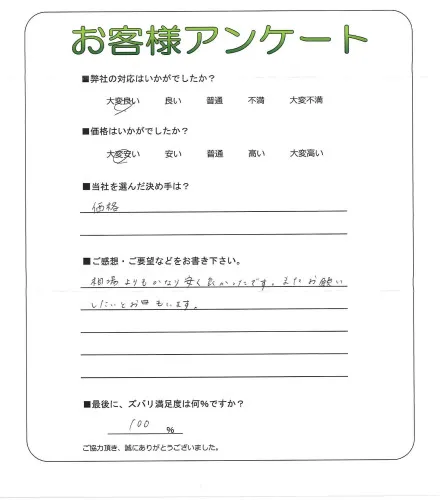 お客様アンケート
■弊社の対応はいかがでしたか？
大変良い 良い 普通 不満 大変不満
■価格はいかがでしたか？
大変安い 安い 普通 高い 大変高い
■当社を選んだ決め手は？
価格
■ご感想・ご要望などをお書き下さい。
相場よりもかなり安く良かったです。またお願い
したいとお思もいます。
■最後に、ズバリ満足度は何%ですか？
100 %
ご協力頂き、誠にありがとうございました。